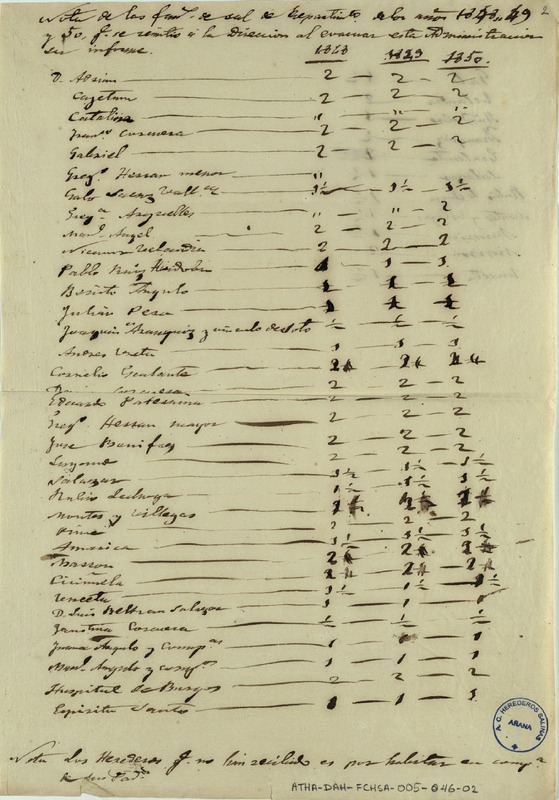 Nota de las fan.s de sal de Repartim.to de los años 1848, 49 2
y 50, q. se remitió á la Direccion al evacuar esta Administracion
su informe. 1848 1849 1850.
D. Adrian 2 2 2
Cayetana 2 2 2
Catalina " " "
Fran.co Corcuera 2 2 2
Gabriel 2 2 2
Greg.o Herran menor "
Galo Saenz 1½ 1½ 1½
Greg.a Arguelles " " 2
Man.l Angel 2 2 2
Nicanor Velandia 2 2 2
Pablo Ruiz 1 1 1
Benito Angulo 1 1 1
Julian Perea 1 1 1
Joaquin Aranguiz y vinculo de Soto ½ ½ ½
Andres 1 1 1
Cornelio Gualante 2 2 2
Corcuera 2 2 2
Eduardo Paternina 2 2 2
Greg.o Herran mayor 2 2 2
Jose Bonifaz 2 2 2
2 2 2
Salazar 1½ 1½ 1½
Rubio 1½ 1½ 1½
Montes y Villegas 2 2 2
2 2 2
1½ 1½ 1½
Barron 2 2 2
Ciriñuela 2 2 2
1½ 1½ 1½
D. Luis Beltran Salazar 1 1 1
Faustina Corcuera ½ ½ ½
Juana Angulo y comp.as 1 1 1
Man.l Angulo y comp.s 1 1 1
Hospital de Burgos 2 2 2
Espiritu Santo 1 1 1
Nota Los Herederos q. no han recibido es por habitar en comp.a
de sus Pad.s
A. C. HEREDEROS SALINAS
AÑANA
ATHA-DAH-FCHSA-005-046-02